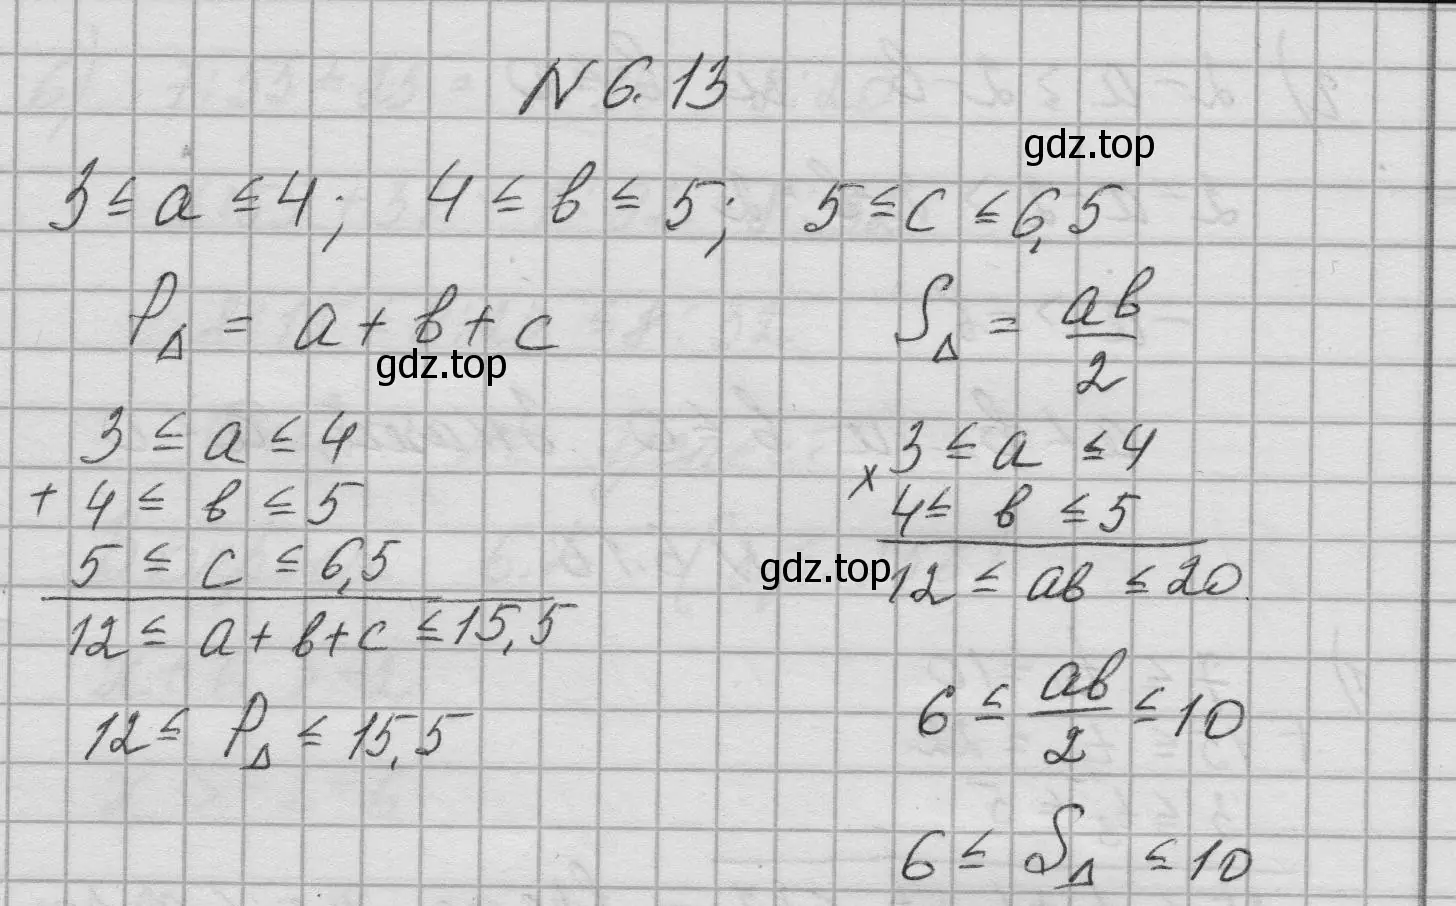 N 6.13
gdz.top
3 ≤ a ≤ 4; 4 ≤ в ≤ 5; 5 ≤ c ≤ 6,5
P△ = a + в + c
S△ = aв/2
gdz.top
3 ≤ a ≤ 4
+ 4 ≤ в ≤ 5
5 ≤ c ≤ 6,5
12 ≤ a + в + c ≤ 15,5
12 ≤ P△ ≤ 15,5
x 3 ≤ a ≤ 4
4 ≤ в ≤ 5
gdz.top
12 ≤ aв ≤ 20.
6 ≤ aв/2 ≤ 10
6 ≤ S△ ≤ 10